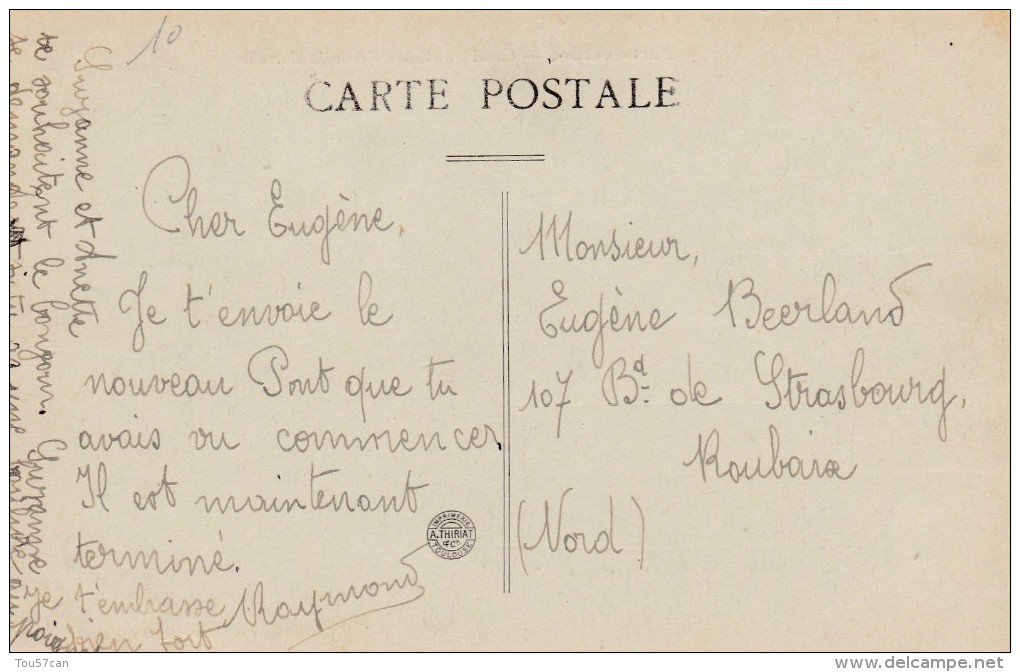 10
CARTE POSTALE
Cher Eugène,
Je t'envoie le
nouveau Pont que tu
avais vu commencer
Il est maintenant
terminé.
Je t'embrasse
bien fort Raymond
Suzanne et Anette
te souhaitent le bonjour. Suzanne
te demande si tu as une
Monsieur,
Eugène Beerland
107 Bd. de Strasbourg,
Roubaix
(Nord)
IMPRIMERIE
A. THIRIAT
& Cie
TOULOUSE
Tou57can
delcampe.net